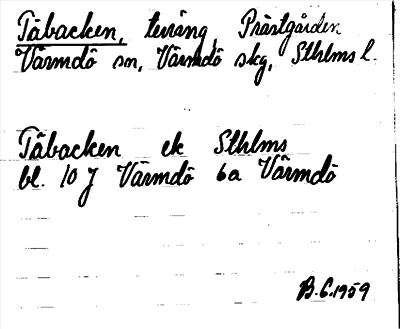 Täbacken, teräng, Prästgården
Värmdö sn, Värmdö skg, Sthlms l.
Täbacken ek Sthlms
bl. 10 J Värmdö 6a Värmdö
B.G.1959